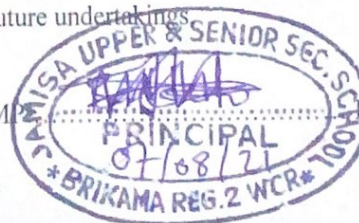 uture undertakings
JAMISA UPPER & SENIOR SEC. SCHOOL
PRINCIPAL
07/08/21
* BRIKAMA REG. 2 WCR *